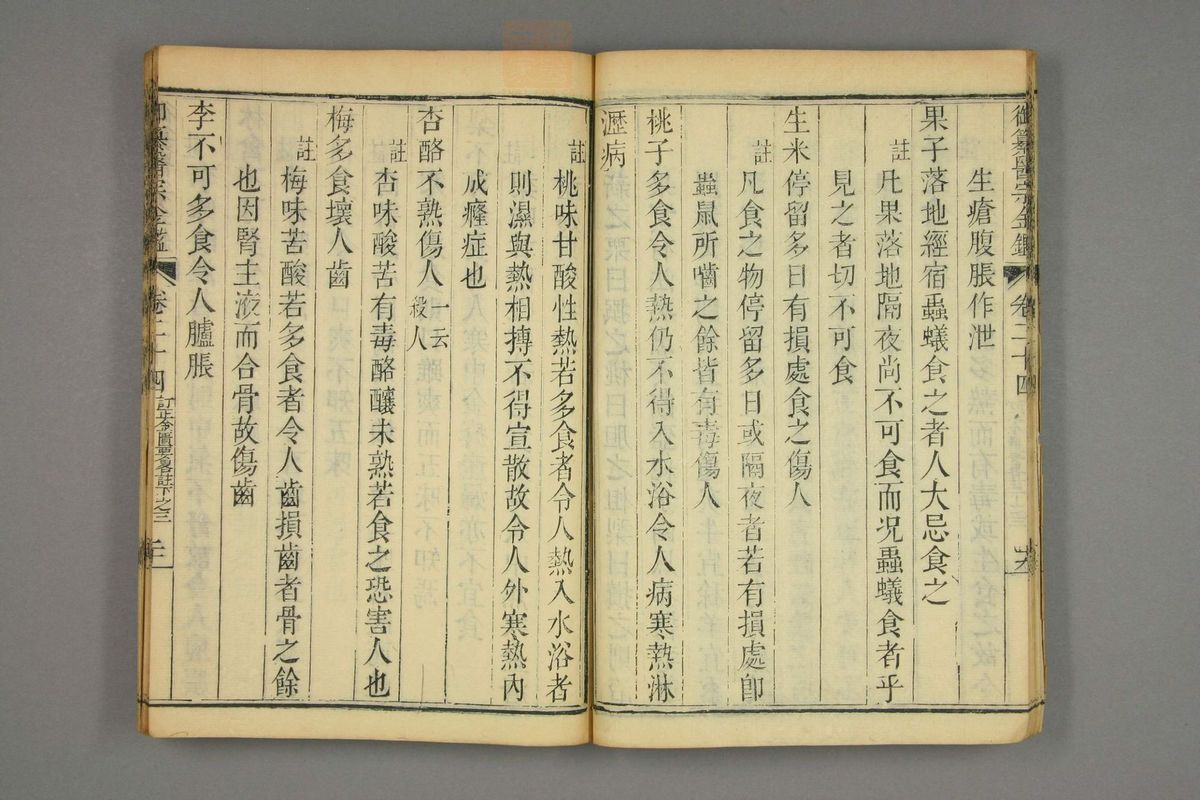 御纂醫宗金鑑 卷二十四
生瘡腹脹作泄
果子落地經宿蟲蟻食之者人大忌食之
註凡果落地隔夜尚不可食而况蟲蟻食者乎
見之者切不可食
生米停留多日有損處食之傷人
註凡食之物停留多日或隔夜者若有損處卽
蟲鼠所嚙之餘皆有毒傷人
桃子多食令人熱仍不得入水浴令人病寒熱淋
瀝病
註桃味甘酸性熱若多食者令人熱入水浴者
則濕與熱相搏不得宣散故令人外寒熱內
成癃症也
杏酪不熟傷人一云殺人
註杏味酸苦有毒酪釀未熟若食之恐害人也
梅多食壞人齒
註梅味苦酸若多食者令人齒損齒者骨之餘
也因腎主液而合骨故傷齒
李不可多食令人臚脹
御纂醫宗金鑑 卷二十四 訂正金匱要畧註下之三